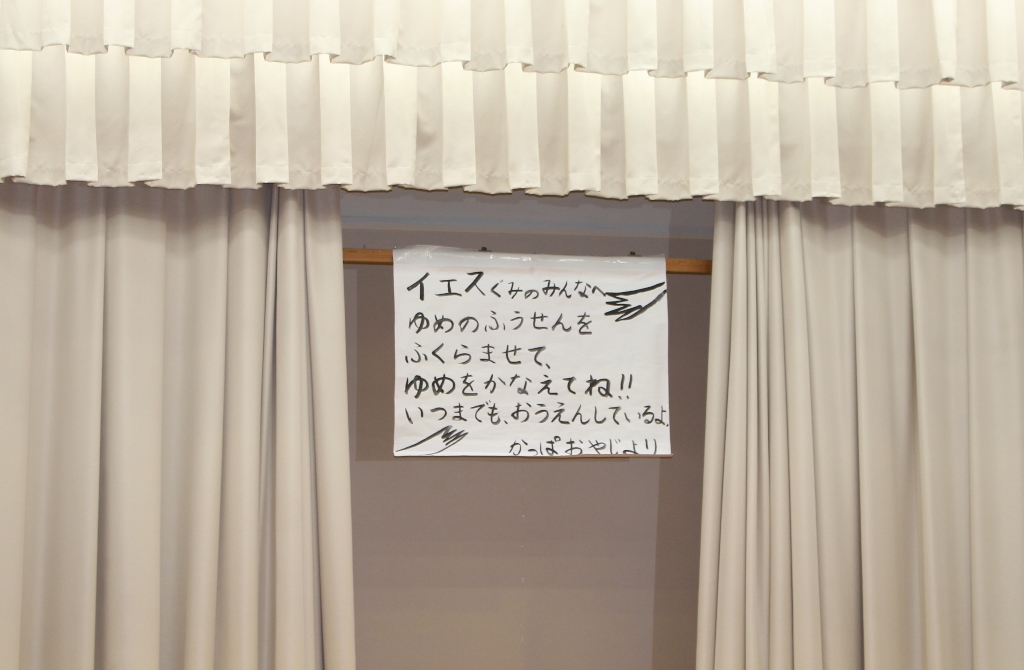 イエスぐみのみんなへ
ゆめのふうせんを
ふくらませて、
ゆめをかなえてね!!
いつまでも、おうえんしているよ。
かっぱおやじより